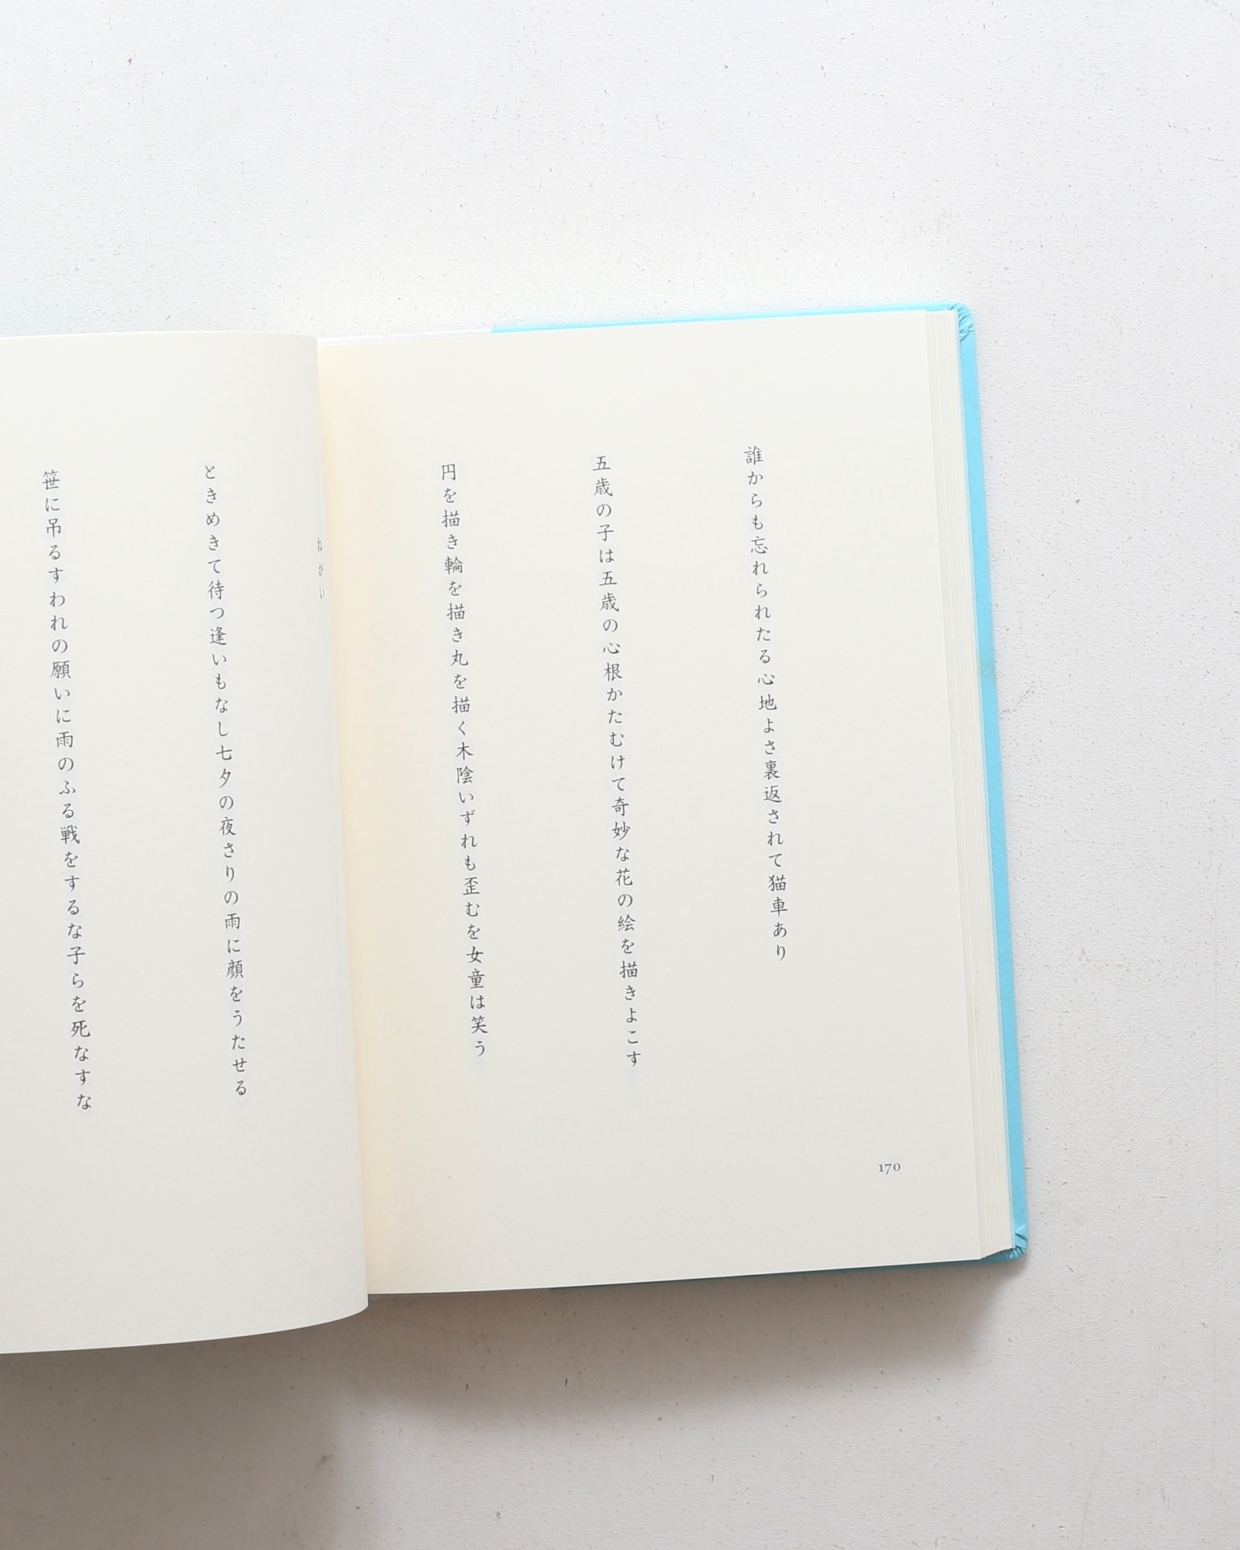 誰からも忘れられたる心地よさ裏返されて猫車あり
五歳の子は五歳の心根かたむけて奇妙な花の絵を描きよこす
円を描き輪を描き丸を描く木陰いずれも歪むを女童は笑う
170
ねがい
ときめきて待つ逢いもなし七夕の夜さりの雨に顔をうたせる
笹に吊るすわれの願いに雨のふる戦をするな子らを死なすな